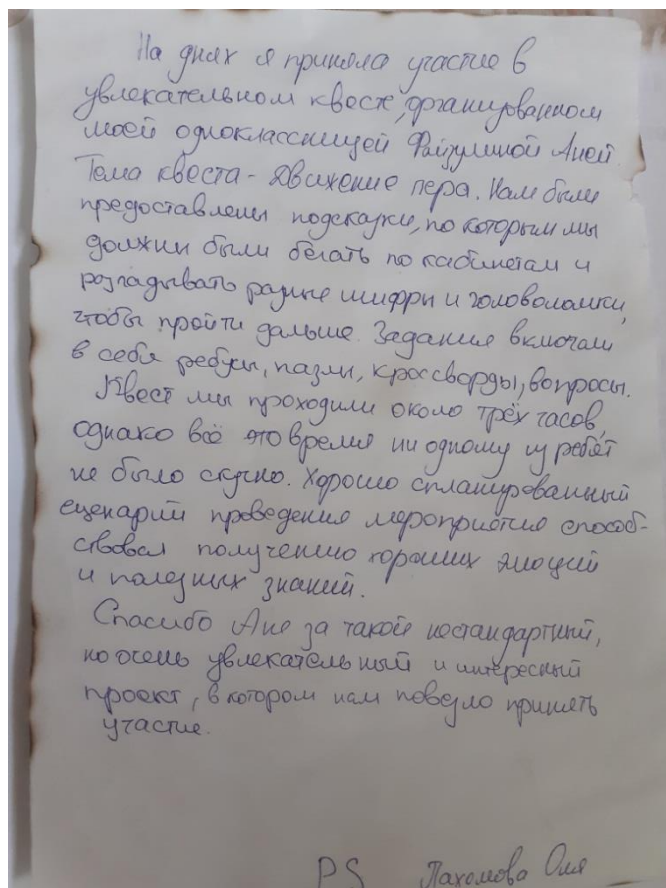 На днях я приняла участие в
увлекательном квесте, организованном
моей одноклассницей Файзулиной Аней.
Тема квеста - Движение пера. Нам были
предоставлены подсказки, по которым мы
должны были бегать по кабинетам и
розгадывать разные шифры и головоломки,
чтобы пройти дальше. Задания включали
в себя ребусы, пазлы, кроссворды, вопросы.
Квест мы проходили около трёх часов,
однако всё это время ни одному из ребят
не было скучно. Хорошо спланированный
сценарий проведения мероприятия способ-
ствовал получению хороших эмоций
и полезных знаний.
Спасибо Ане за такой нестандартный,
но очень увлекательный и интересный
проект, в котором нам повезло принять
участие.
PS Пахомова Оля